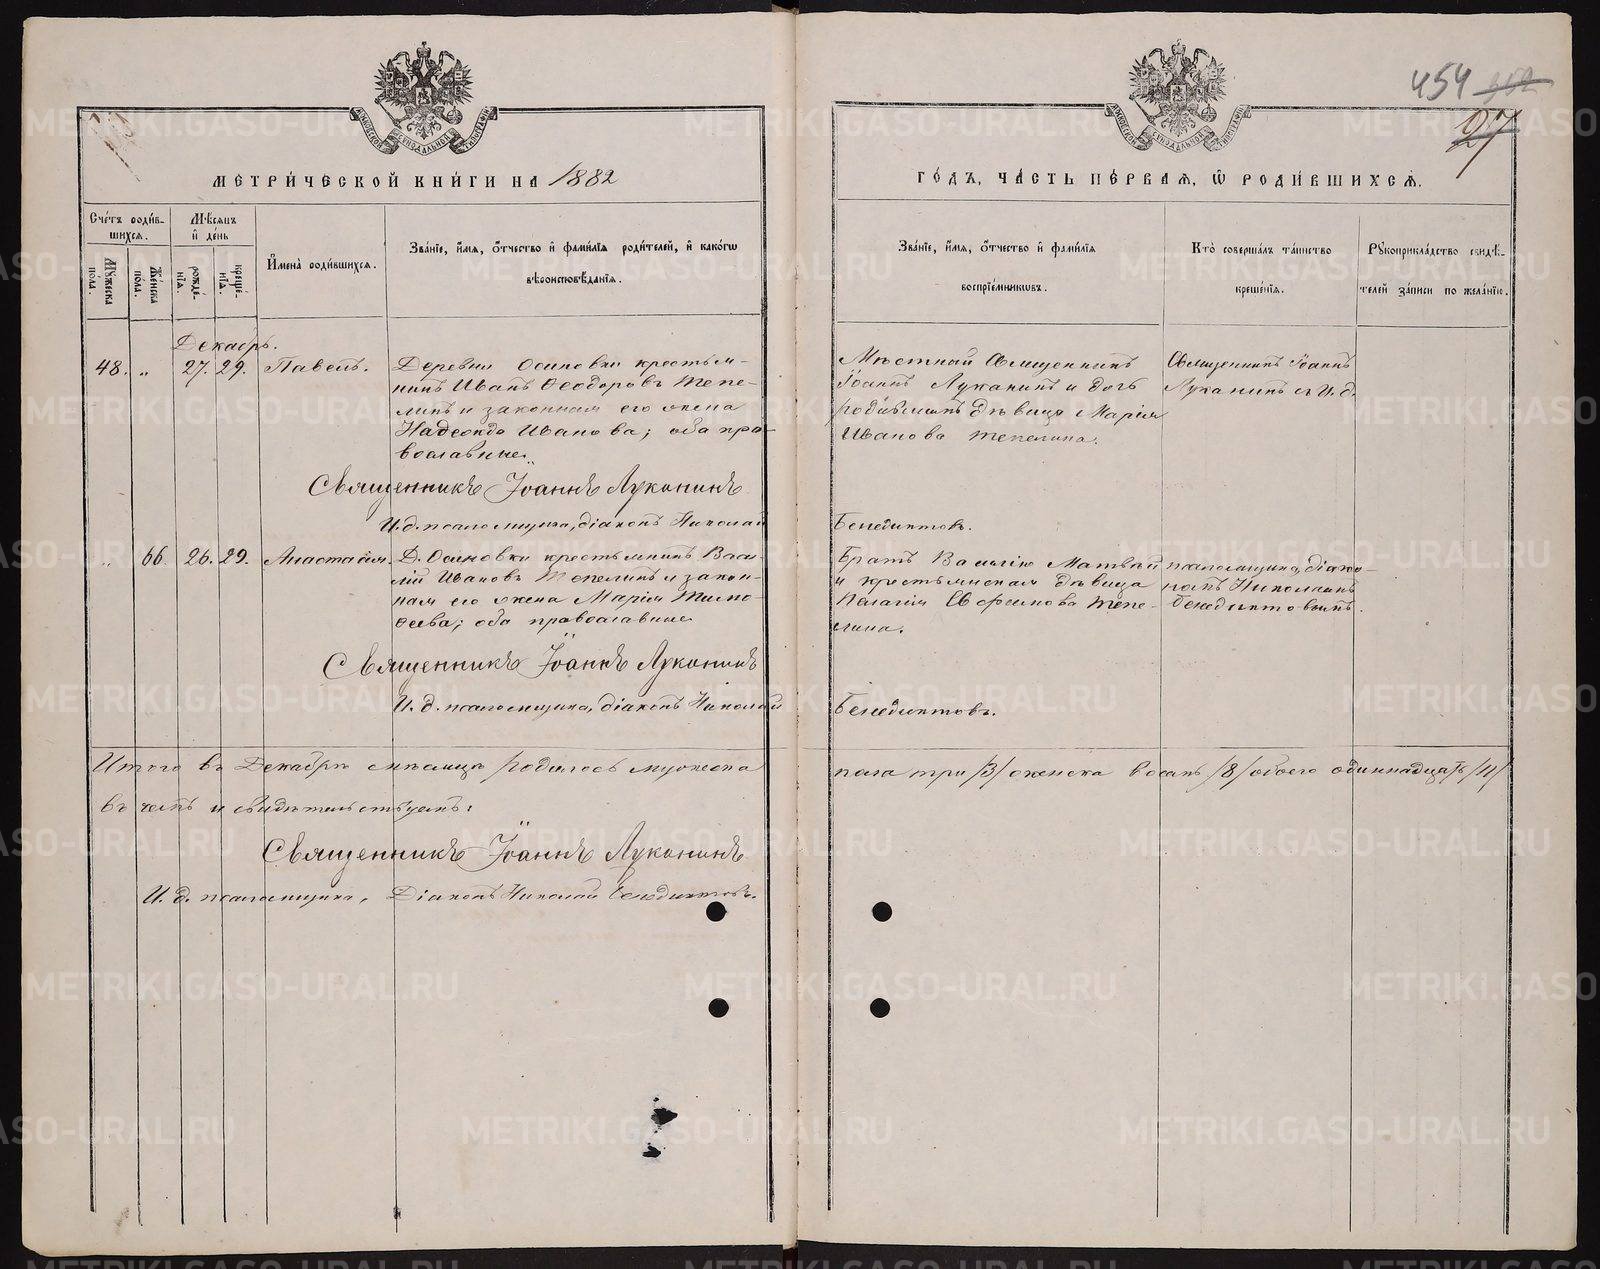 454 952
27
МОСКОВСКОЙ СѴНОДАЛЬНОЙ ТИПОГРАФІИ
МОСКОВСКОЙ СѴНОДАЛЬНОЙ ТИПОГРАФІИ
МЕТРИ́ЧЕСКОЙ КНИ́ГИ НА 1882
ГО́ДЪ, ЧА́СТЬ ПЕ́РВАЯ, Ѿ РОДИ́ВШИХСЯ.
Сче́тъ роди́в-
шихся.
Мѣсяцъ
и де́нь
Му́жеска по́ла.
Же́нска пола.
рожде́-нїѧ.
креще́-нїѧ.
Имена̀ роди́вшихся.
Зва́нїе, и́мѧ, ѻ҆́тчество и҆ фами́лїѧ роди́телей, и҆ како́гѡ
вѣроисповѣ́данїѧ.
Зва́нїе, и́мѧ, ѻ҆́тчество и҆ фами́лїѧ
воспрїе́мникѡвъ.
Кто̀ соверша́лъ та́инство
креще́нїѧ.
Рукоприкла́дство свидѣ́-
телей за́писи по жела́нїю.
Декабрь.
48. „ 27. 29. Павелъ.
Деревни Осиновки крестья-
нинъ Иванъ Ѳеодоровъ Тепе-
линъ и законная его жена
Надежда Иванова; оба пра-
вославные.
Мѣстный Священникъ
Іоаннъ Луканинъ и дочь
родившихъ дѣвица Марія
Иванова Тепелина.
Священникъ Іоаннъ
Луканинъ съ И. д.
Священникъ Іоаннъ Луканинъ
И. д. псаломщика, діаконъ Николай
Бенедиктовъ.
„ 66. 26. 29. Анастасія.
Д. Осиновки крестьянинъ Васи-
лій Ивановъ Тепелинъ и закон-
ная его жена Марія Тимо-
ѳеева; оба православные
Братъ Василію Матвѣй
и крестьянская дѣвица
Пелагія Ефимова Тепе-
лина.
псаломщика, діако-
номъ Николаемъ
Бенедиктовымъ.
Священникъ Іоаннъ Луканинъ
И. д. псаломщика, діаконъ Николай
Бенедиктовъ.
Итого въ Декабрѣ мѣсяцѣ родилось мужеска
пола три /3/ женска восемь /8/ обоего одиннадцать /11/
въ чемъ и свидѣтельствуемъ:
Священникъ Іоаннъ Луканинъ
И. д. псаломщика, Діаконъ Николай Бенедиктовъ.
METRIKI.GASO-URAL.RU